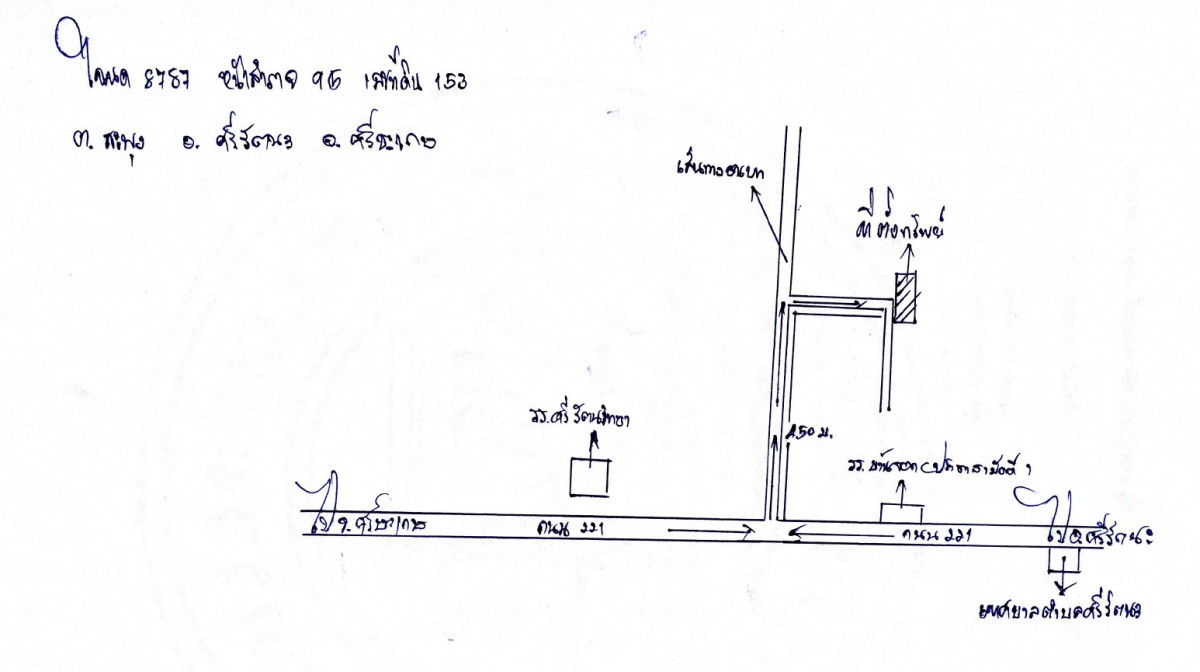 โฉนด 8787 หน้าสำรวจ 915 เลขที่ดิน 153
ต. สะพุง อ. ศรีรัตนะ จ. ศรีสะเกษ
ที่ตั้งทรัพย์
รร.ศรีรัตนวิทยา
450 ม.
รร.บ้าน
ไป จ.ศรีสะเกษ ถนน 221 ถนน 221 ไป อ.ศรีรัตนะ
เทศบาลตำบลศรีรัตนะ